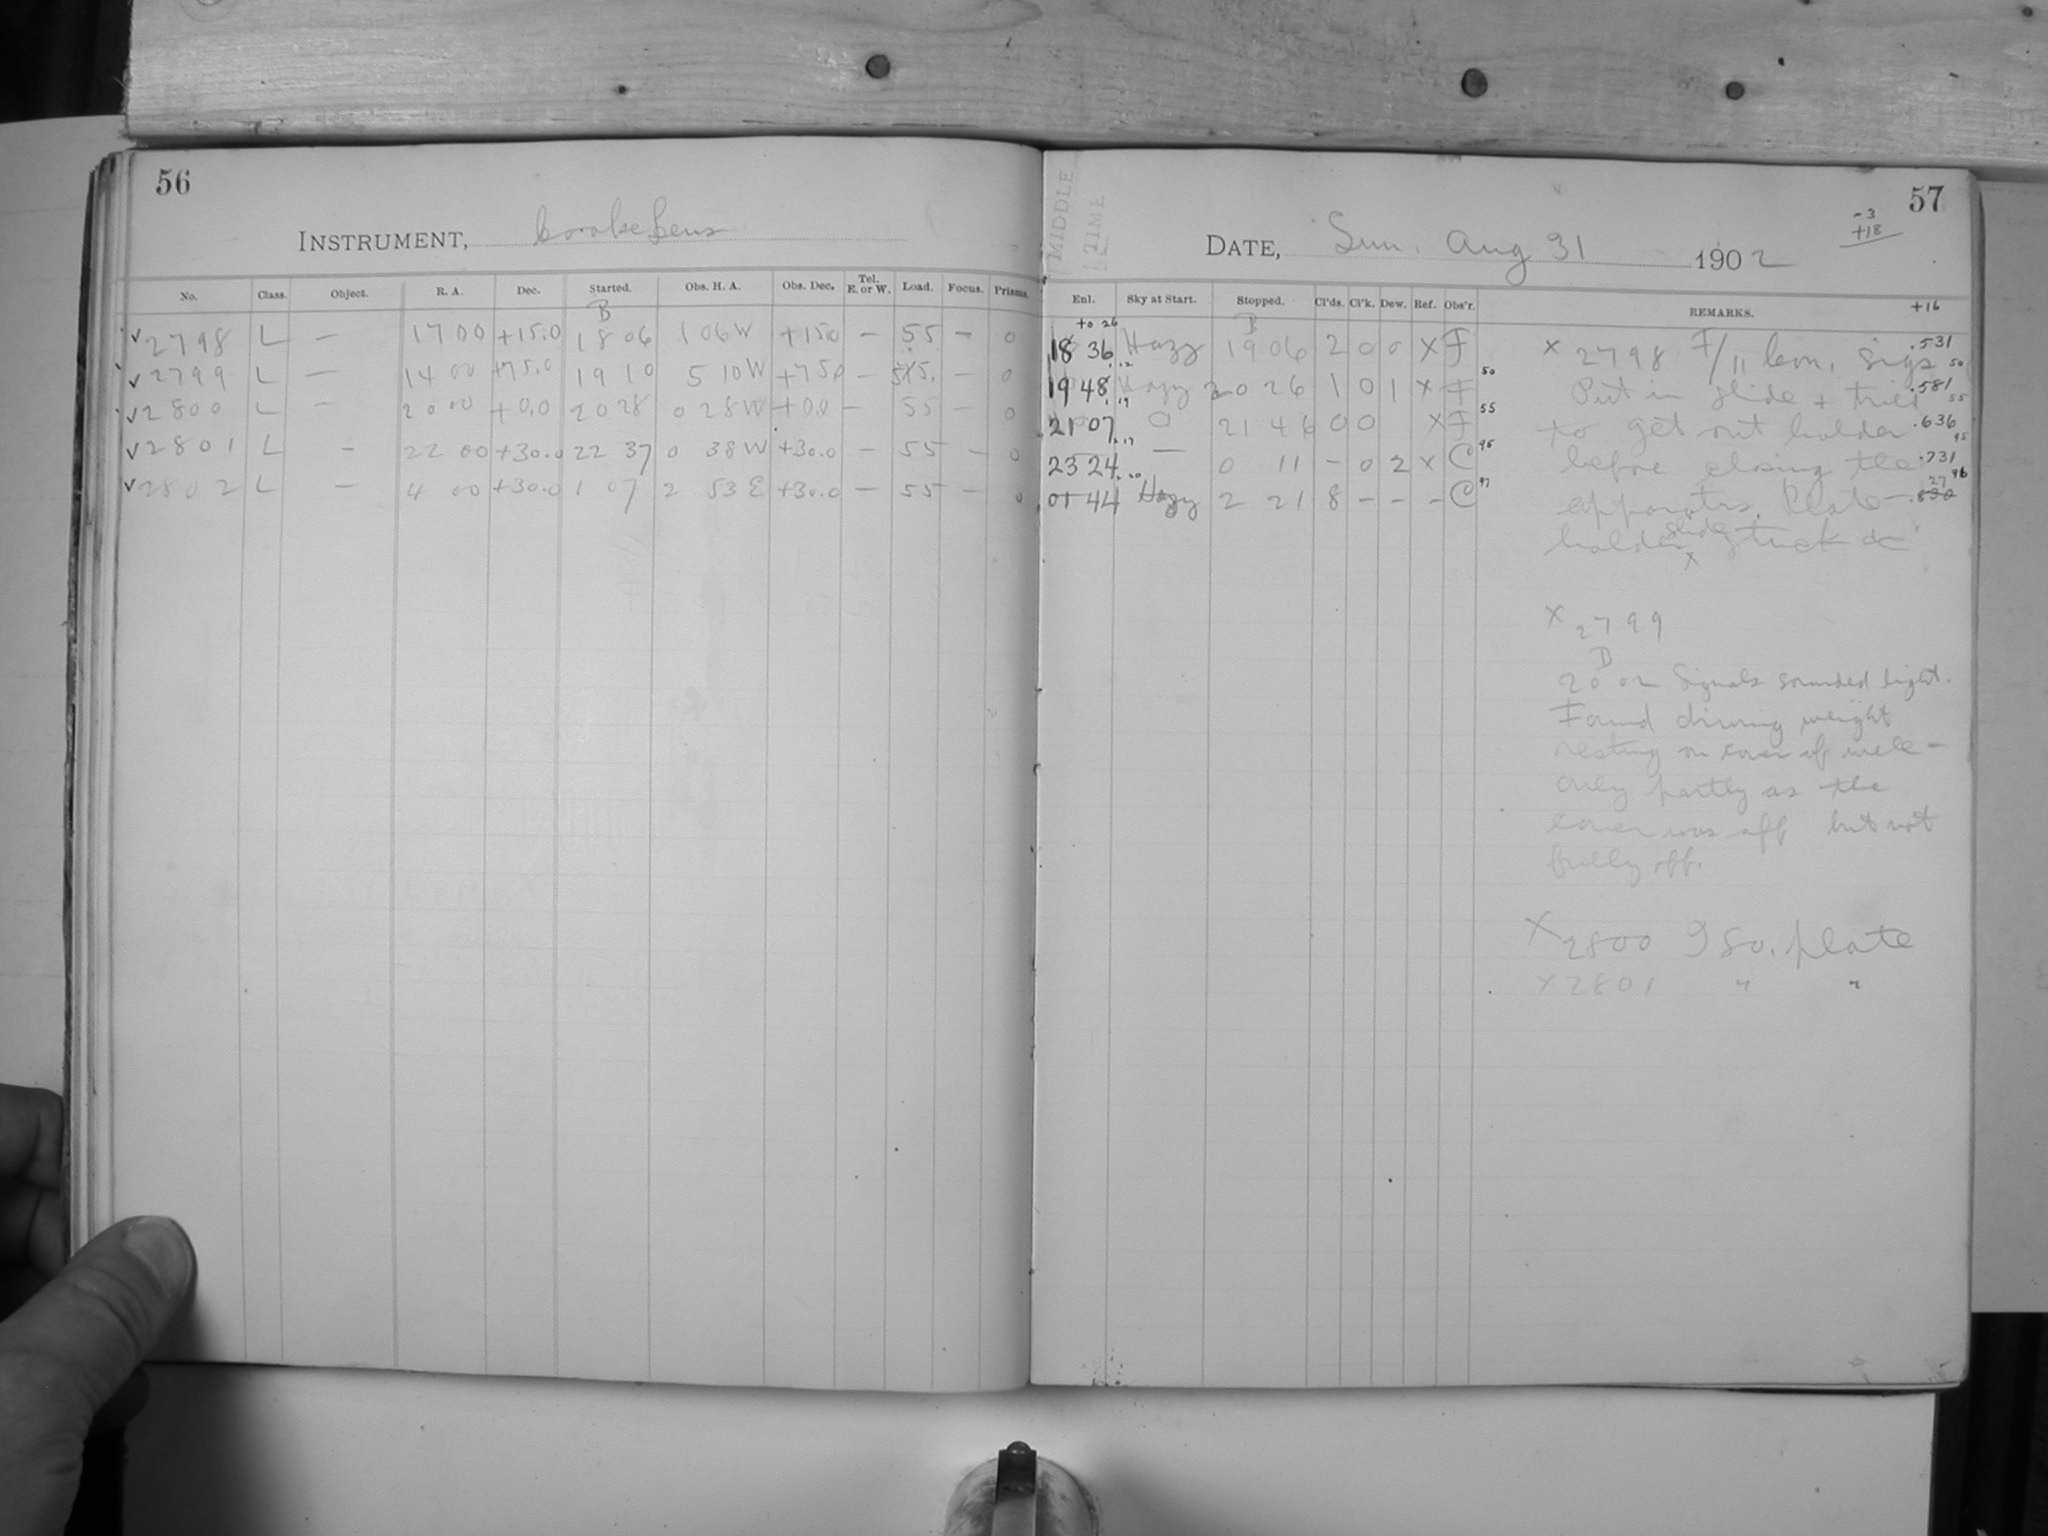 56
INSTRUMENT, Cooke Lens
No. Class. Object. R. A. Dec. Started. Obs. H. A. Obs. Dec. Tel. E. or W. Load. Focus. Prisms.
B
✓2798 L — 17 00 +15.0 18 06 1 06 W +15.0 — 55 — 0
✓2799 L — 14 00 +75.0 19 10 5 10 W +75.0 — 55 — 0
✓2800 L — 20 00 +0.0 20 28 0 28 W +0.0 — 55 — 0
✓2801 L — 22 00 +30.0 22 37 0 38 W +30.0 — 55 — 0
✓2802 L — 4 00 +30.0 1 07 2 53 E +30.0 — 55 — 0
MIDDLE
TIME
57
-3
+18
DATE, Sun. Aug 31 1902
Enl. Sky at Start. Stopped. Cl'ds. Cl'k. Dew. Ref. Obs'r. REMARKS. +16
+0 26 B
18 36 Hazy 19 06 2 0 0 X F
19 48 Hazy 20 26 1 0 1 X F
21 07 0 21 46 0 0 X F
23 24 — 0 11 - 0 2 X C
01 44 Hazy 2 21 8 - - - C
50
55
95
97
.531
50
.581
55
.636
95
.731
96
27
X 2798 F/11 Com. sigs
Put in slide + tried
to get out holder
before closing the
apparatus. Plate-
holder slide stuck
X
X 2799
B
20 02 Signals sounded light.
Found driving weight
resting on cover of well -
only partly as the
cover was off but not
fully off.
X 2800 Iso. plate
X 2801 " "